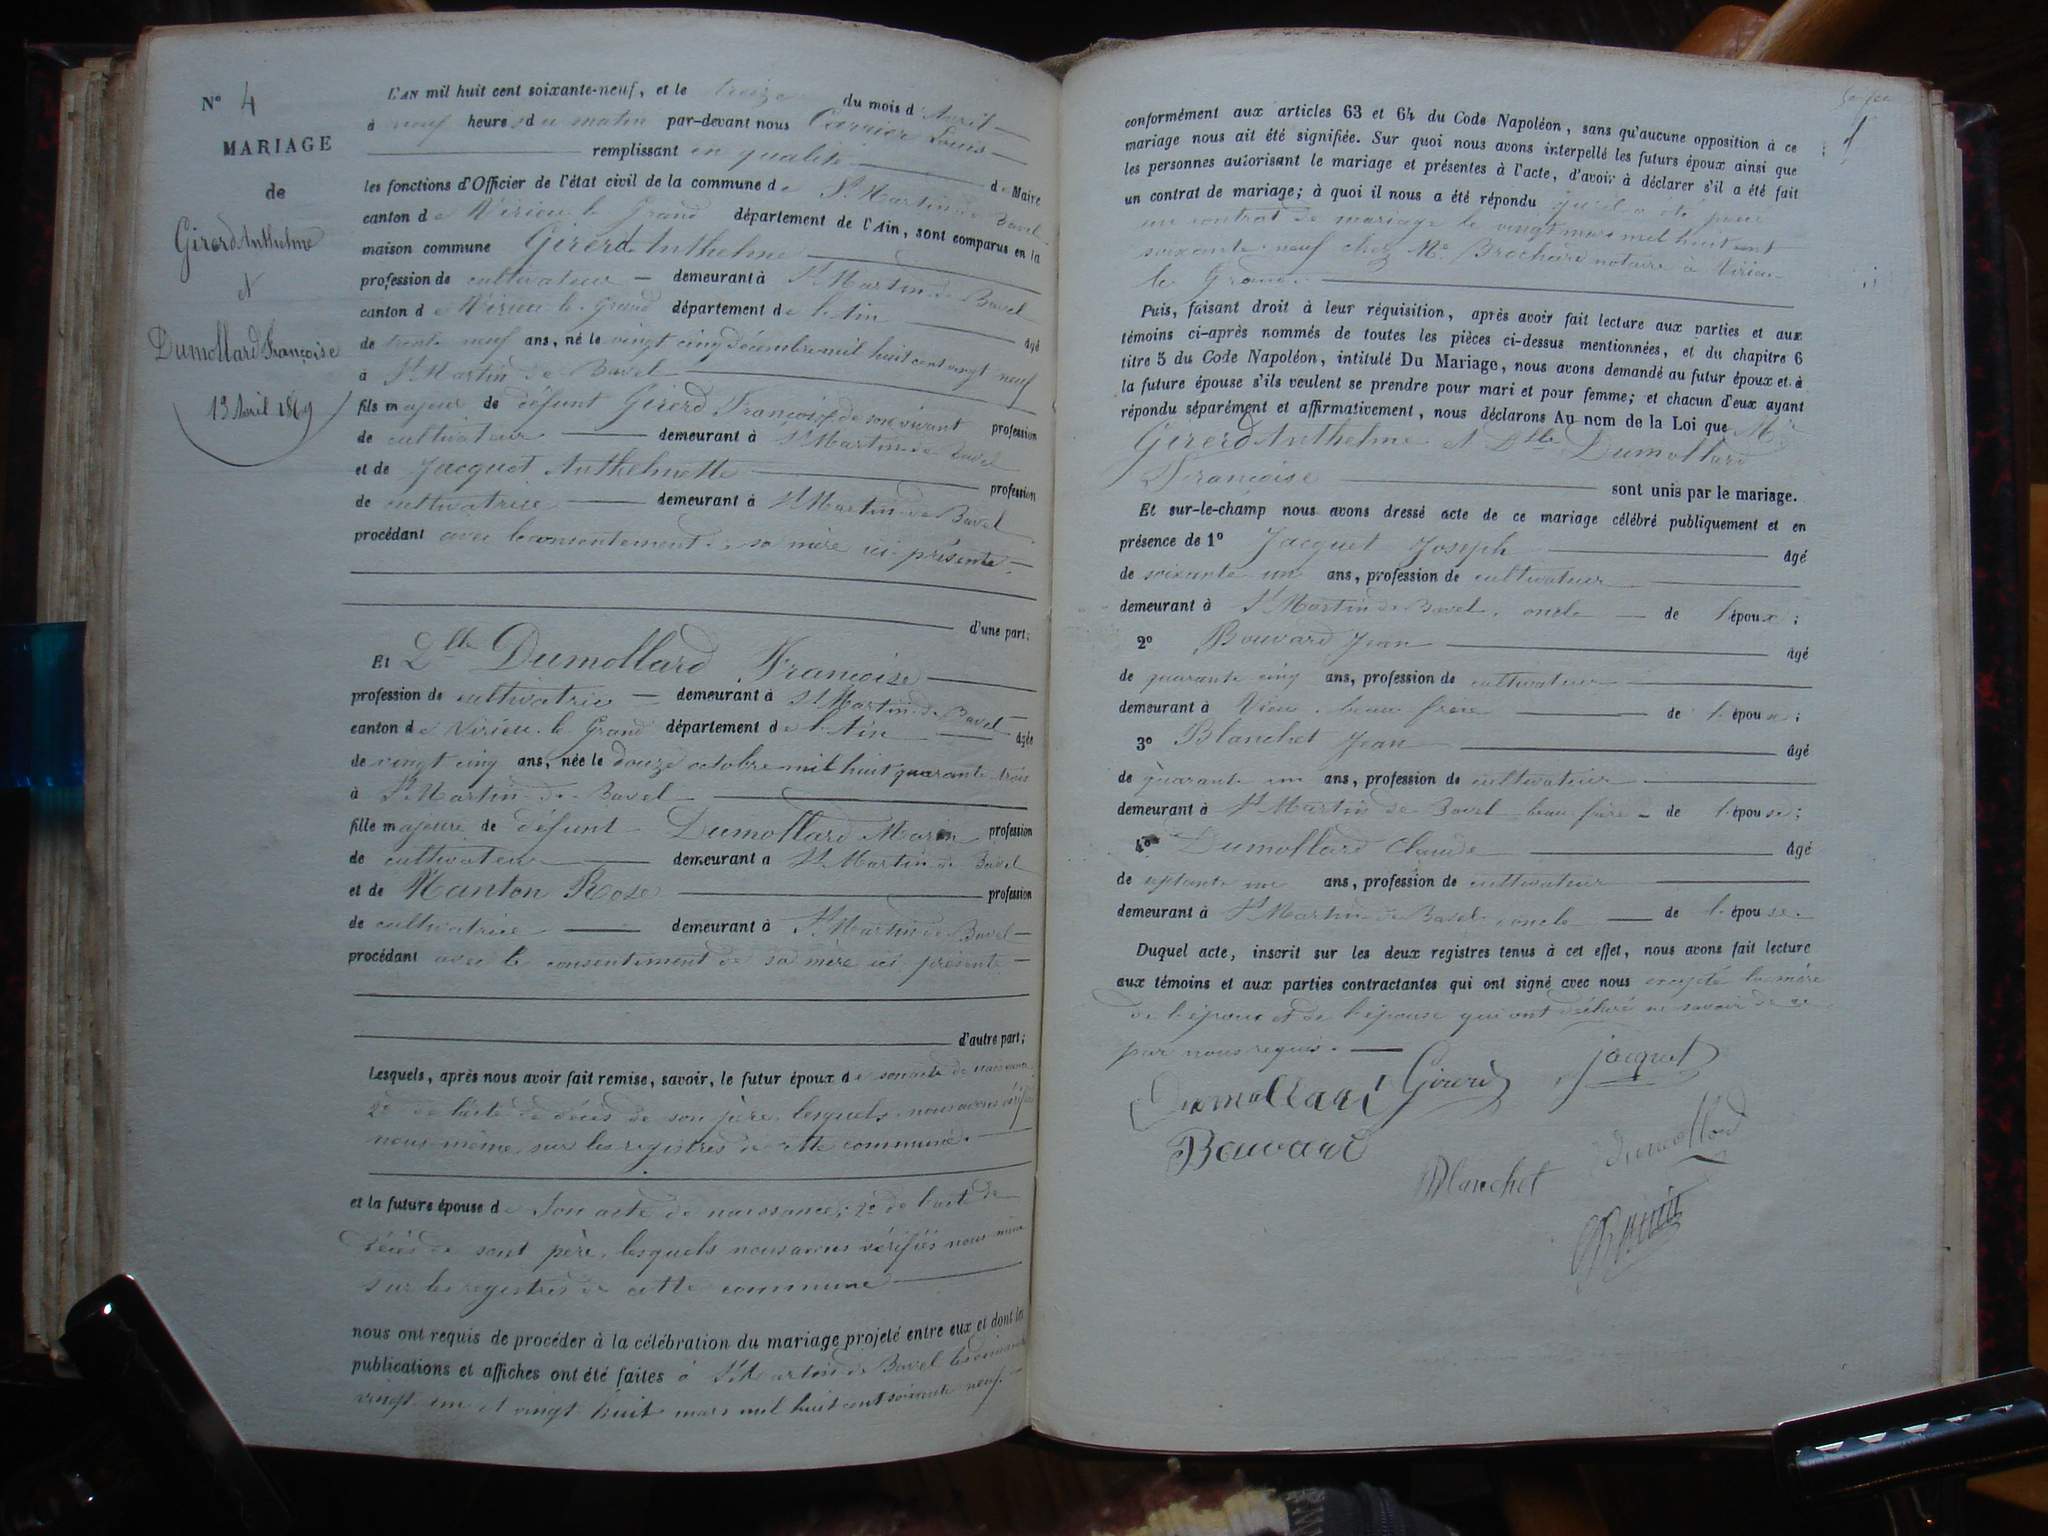 N° 4
MARIAGE
de
Girerd Anthelme
et
Dumollard Françoise
13 Avril 1869
L'AN mil huit cent soixante-neuf, et le treize du mois d'Avril
à neuf heures du matin par-devant nous Carrier Louis
remplissant en qualité de Maire
les fonctions d'Officier de l'état civil de la commune de St Martin de Bavel
canton de Virieu le Grand département de l'Ain, sont comparus en la
maison commune Girerd Anthelme
profession de cultivateur demeurant à St Martin de Bavel
canton de Virieu le Grand département de l'Ain âgé
de trente neuf ans, né le vingt cinq décembre mil huit cent vingt neuf
à St Martin de Bavel
fils majeur de défunt Girerd François de son vivant profession
de cultivateur demeurant à St Martin de Bavel
et de Jacquet Anthelmette profession
de cultivatrice demeurant à St Martin de Bavel
procédant avec le consentement de sa mère ici présente
d'une part;
Et Dlle Dumollard Françoise
profession de cultivatrice demeurant à St Martin de Bavel
canton de Virieu le Grand département de l'Ain âgée
de vingt cinq ans, née le douze octobre mil huit quarante trois
à St Martin de Bavel
fille majeure de défunt Dumollard Marin profession
de cultivateur demeurant a St Martin de Bavel
et de Nanton Rose profession
de cultivatrice demeurant à St Martin de Bavel
procédant avec le consentement de sa mère ici présente
d'autre part;
Lesquels, après nous avoir fait remise, savoir, le futur époux de son acte de naissance
2° de l'acte de décès de son père, lesquels nous avons vérifiés
nous même sur les registres de cette commune.
et la future épouse de son acte de naissance; 2° de l'act de
décès de sont père, lesquels nous avons vérifiés nous même
sur les registres de cette commune
nous ont requis de procéder à la célébration du mariage projeté entre eux et dont les
publications et affiches ont été faites à St Martin de Bavel les dimanches
vingt un et vingt huit mars mil huit cent soixante neuf
conformément aux articles 63 et 64 du Code Napoléon, sans qu'aucune opposition à ce
mariage nous ait été signifiée. Sur quoi nous avons interpellé les futurs époux ainsi que
les personnes autorisant le mariage et présentes à l'acte, d'avoir à déclarer s'il a été fait
un contrat de mariage; à quoi il nous a été répondu qu'il a été passé
un contrat de mariage le vingt mars mil huit cent
soixante neuf chez Me Brochard notaire à Virieu
le Grand.
Puis, faisant droit à leur réquisition, après avoir fait lecture aux parties et aux
témoins ci-après nommés de toutes les pièces ci-dessus mentionnées, et du chapitre 6
titre 5 du Code Napoléon, intitulé Du Mariage, nous avons demandé au futur époux et à
la future épouse s'ils veulent se prendre pour mari et pour femme; et chacun d'eux ayant
répondu séparément et affirmativement, nous déclarons Au nom de la Loi que Mr
Girerd Anthelme et Dlle Dumollard
Françoise sont unis par le mariage.
Et sur-le-champ nous avons dressé acte de ce mariage célébré publiquement et en
présence de 1° Jacquet Joseph âgé
de soixante un ans, profession de cultivateur
demeurant à St Martin de Bavel, oncle de l'époux;
2° Bouvard Jean âgé
de quarante cinq ans, profession de cultivateur
demeurant à Vieu, beau frère de l'époux;
3° Blanchet Jean âgé
de quarante un ans, profession de cultivateur
demeurant à St Martin de Bavel beau frère de l'épouse;
4° Dumollard Claude âgé
de septante un ans, profession de cultivateur
demeurant à St Martin de Bavel oncle de l'épouse.
Duquel acte, inscrit sur les deux registres tenus à cet effet, nous avons fait lecture
aux témoins et aux parties contractantes qui ont signé avec nous excepté la mère
de l'époux et de l'épouse qui ont déclaré ne savoir de ce
par nous requis.
Dumollard Girerd Jacquet
Bouvard
Blanchet Dumollard